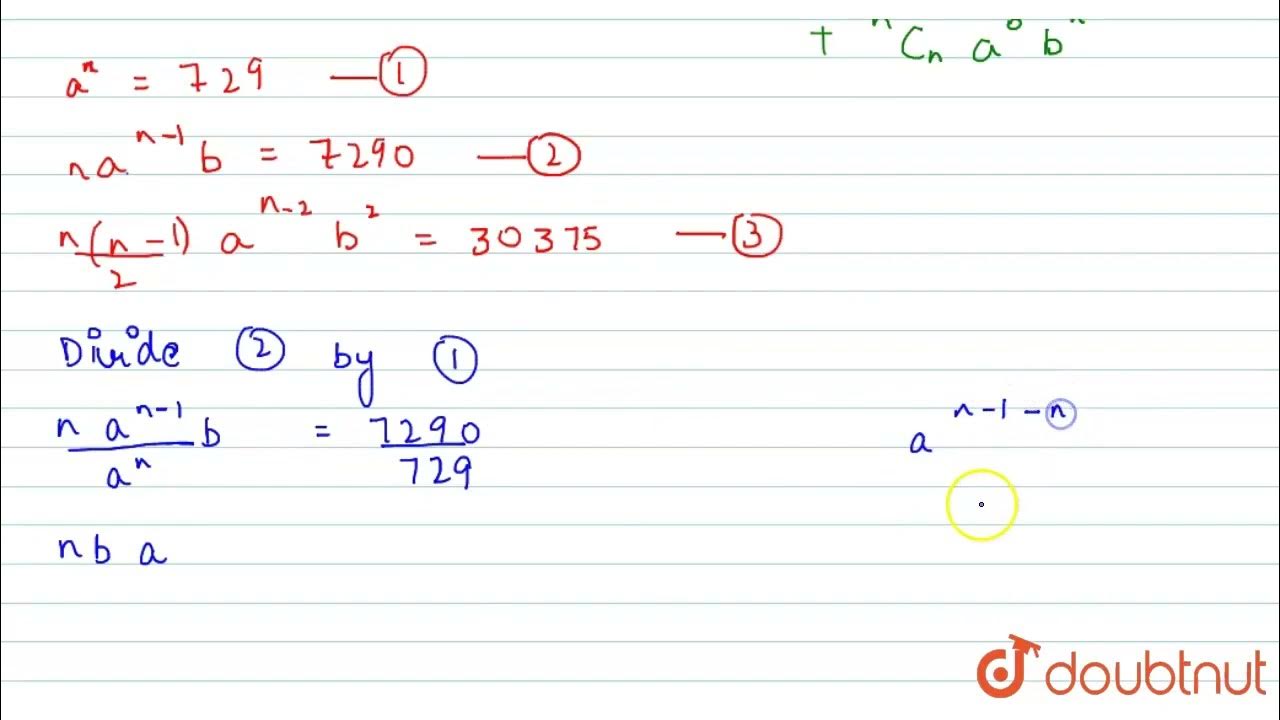 + ⁿCₙ a⁰ bⁿ
aⁿ = 729 — ①
n aⁿ⁻¹ b = 7290 — ②
n(n-1)/2 aⁿ⁻² b² = 30375 — ③
Divide ② by ①
n aⁿ⁻¹ b / aⁿ = 7290 / 729
a ⁿ⁻¹⁻ⁿ
n b a
doubtnut